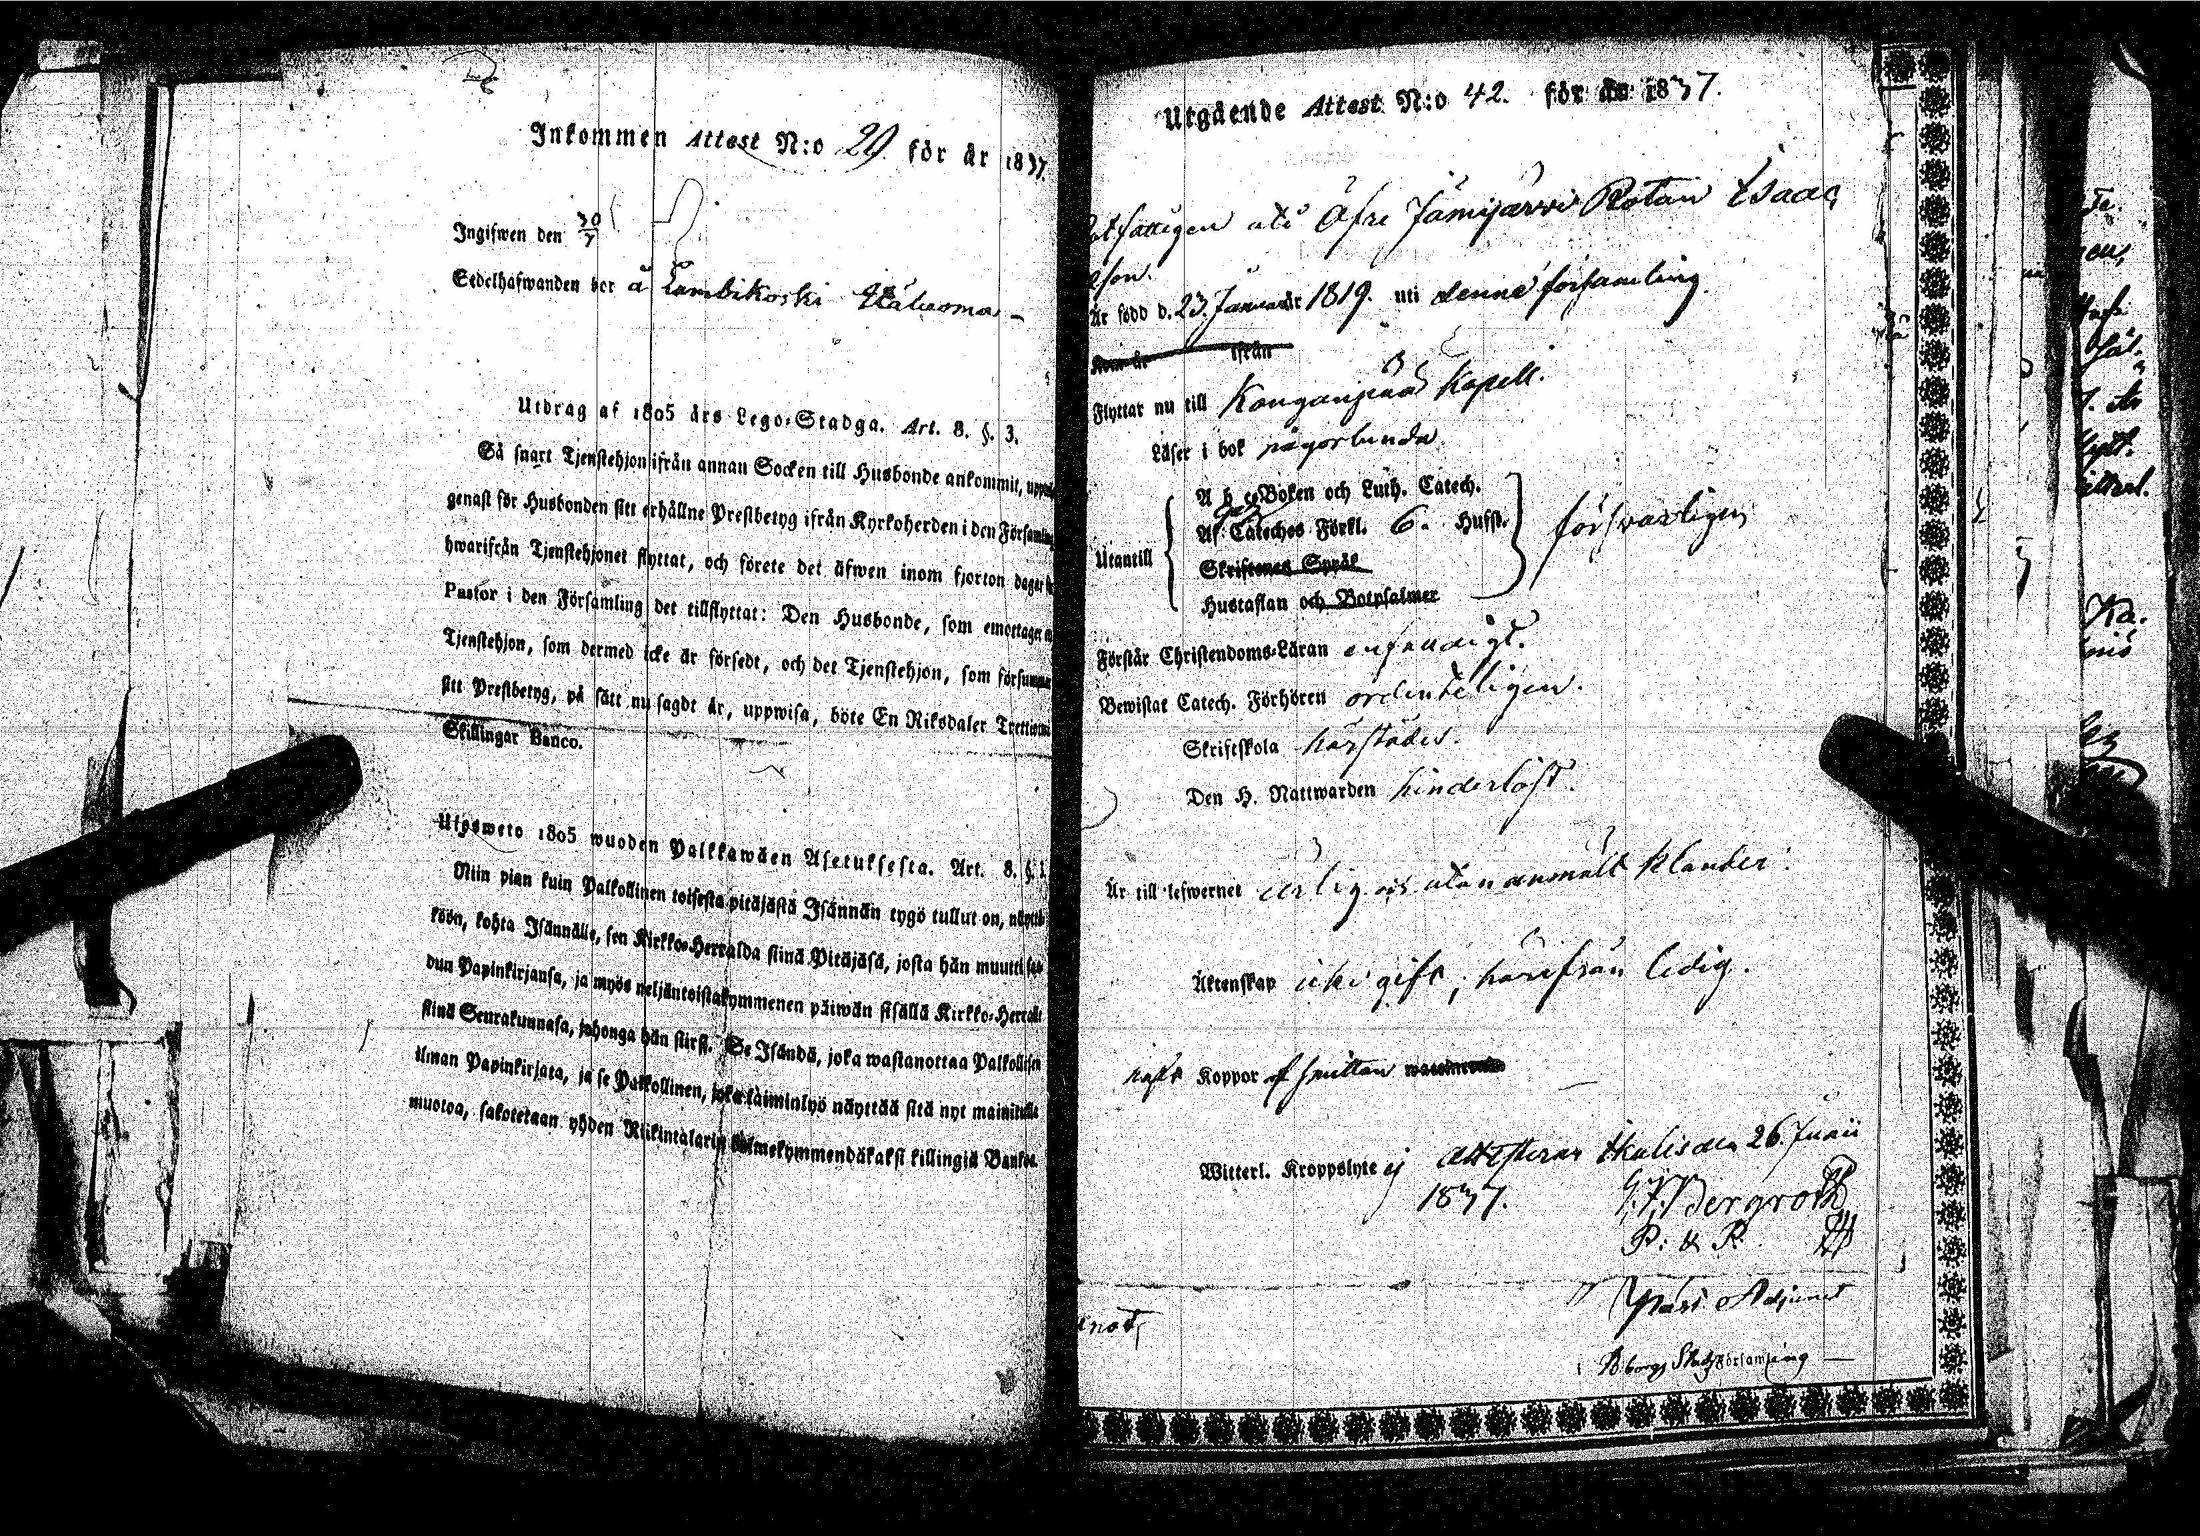 Inkommen Attest N:o 29. för år 1837.
Ingifwen den 30/7
Sedelhafwanden bor å Lambikoski
Utdrag af 1805 års Lego-Stadga. Art. 8. §. 3.
Så snart Tjenstehjon ifrån annan Socken till Husbonde ankommit,
genast för Husbonden sitt erhållne Prestbetyg ifrån Kyrkoherden i den Församling
hwarifrån Tjenstehjonet flyttat, och förete det äfwen inom fjorton dagar
Pastor i den Församling det tillflyttat: Den Husbonde, som emottager
Tjenstehjon, som dermed icke är försedt, och det Tjenstehjon, som försummar
sitt Prestbetyg, på sätt nu sagdt är, uppwisa, böte En Riksdaler
Skillingar Banco.
Ulosweto 1805 wuoden Palkkawäen Asetuksesta. Art. 8. §.
Niin pian kuin Palkollinen toisesta pitäjästä Isännän tygö tullut on,
köön, kohta Isännälle, sen Kirkko-Herralda siinä Pitäjäsä, josta hän muutti
dun Papinkirjansa, ja myös neljäntoistakymmenen päiwän sisällä Kirkko-Herralle
siinä Seurakunnasa, johonga hän siirsi. Se Isändä, joka wastanottaa Palkollisen
ilman Papinkirjata, ja se Palkollinen, joka laiminlyö näyttää sitä nyt mainitulla
muotoa, sakotetaan yhden Riikintalarin kolmekymmendäkaksi killingiä Bankoa.
Utgående Attest N:o 42. för år 1837.
uti Öfre Jämijärvi Rotan Isaac
son.
Är född d. 23. Januar 1819. uti denne församling.
Kom år ifrån
Flyttar nu till Kangaupää Kapell.
Läser i bok någorlunda
Utantill
A b c Boken och Luth. Catech.
Af Cateches Förkl. 6. Hufst.
Skriftenes Språk
Hustaflan och Botpsalmer
försvarligen
Förstår Christendoms-Läran enfaldigt.
Bewistat Catech. Förhören ordenteligen.
Skriftskola härstädes.
Den H. Nattwarden hinderlöst.
Är till lefwernet ärlig och utan anmält klander.
Äktenskap icke gift, härifrån ledig.
haft Koppor af smittan
Witterl. Kroppslyte ej Attesterar Ikalis den 26. Junii
1837. Bergroth
P: & P.
Adjunct
Församling